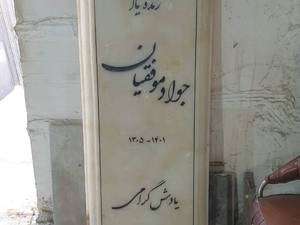 زنده یاد
جواد موفقیان
۱۳۰۵ - ۱۴۰۱
یادش گرامی